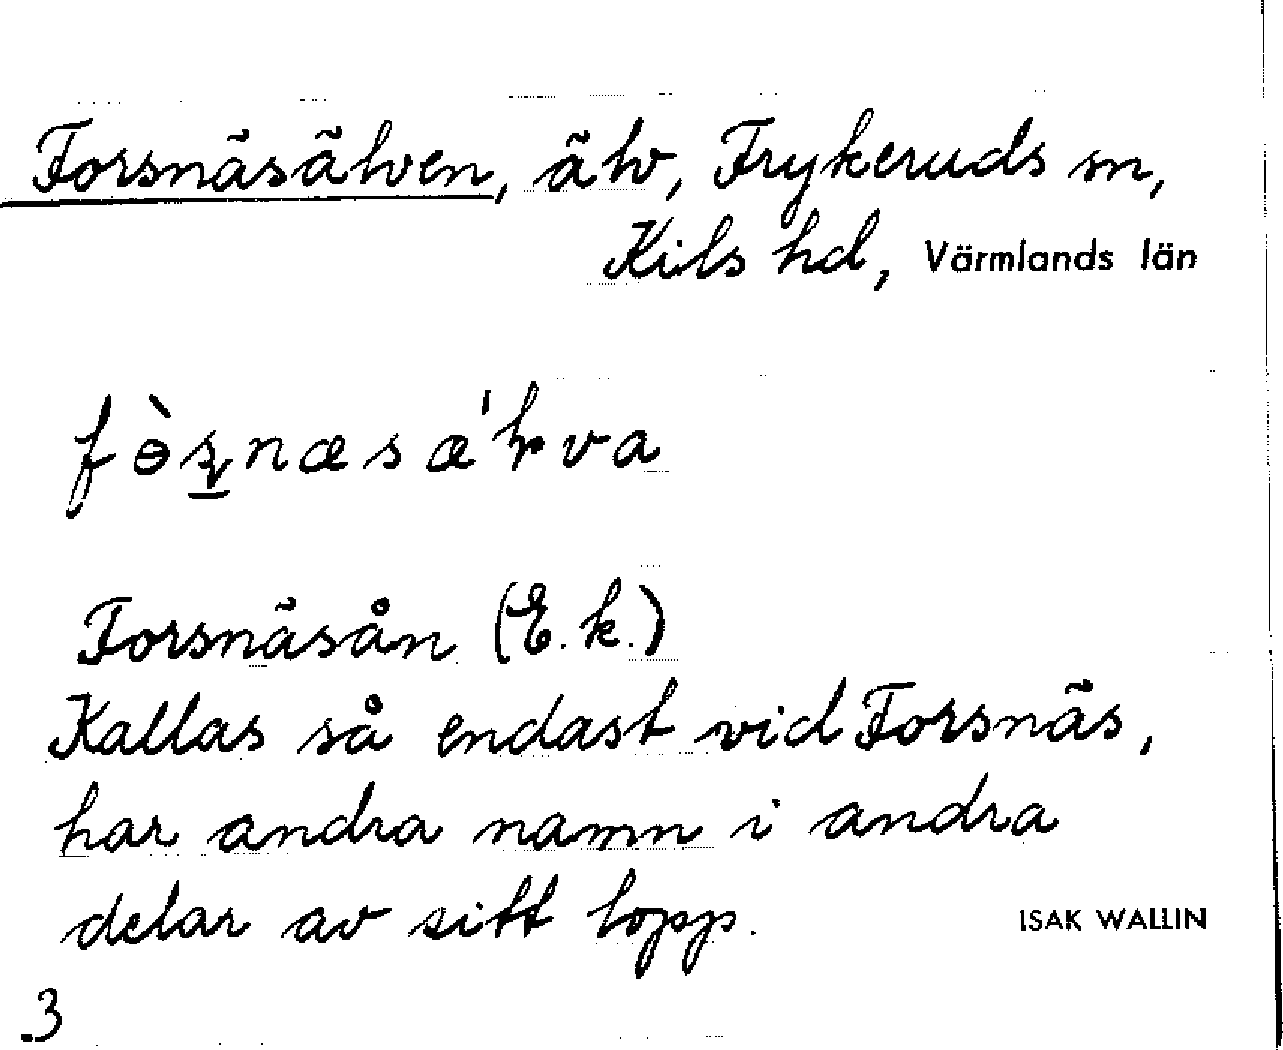 Forsnäsälven, älv, Frykeruds sn,
Kils hd, Värmlands län
Forsnäsån (E.k.)
Kallas så endast vid Forsnäs,
har andra namn i andra
delar av sitt lopp.
ISAK WALLIN
3